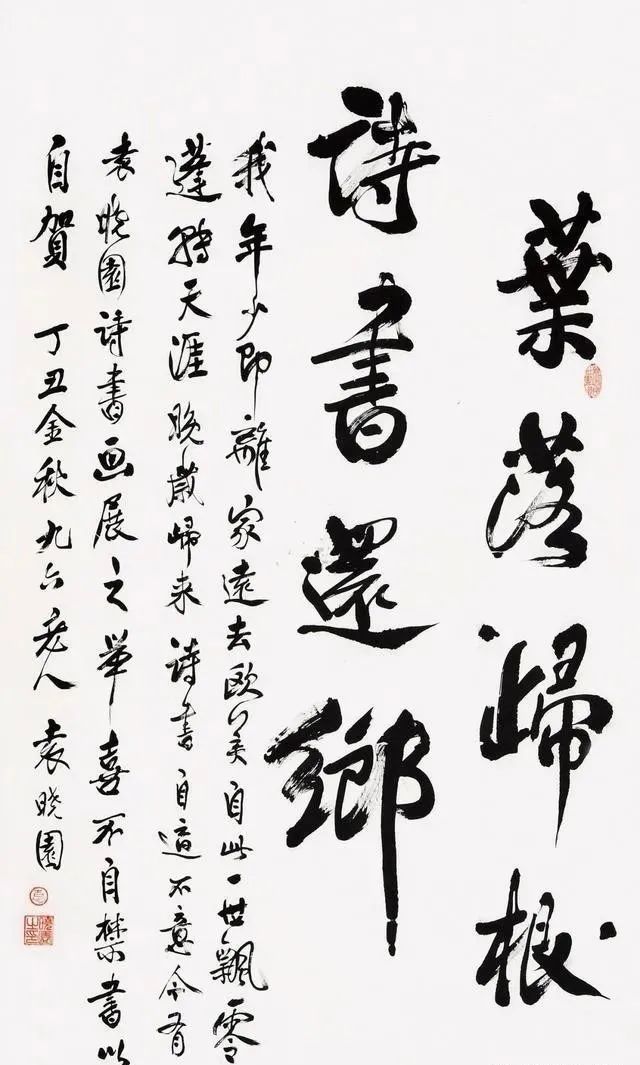 葉落歸根
詩書還鄉
我年少即離家遠去欧美自此一世飄零
蓬轉天涯晚歲歸来詩書自適不意今有
袁晓園诗書画展之举喜不自禁書以
自賀 丁丑金秋九六老人袁晓園